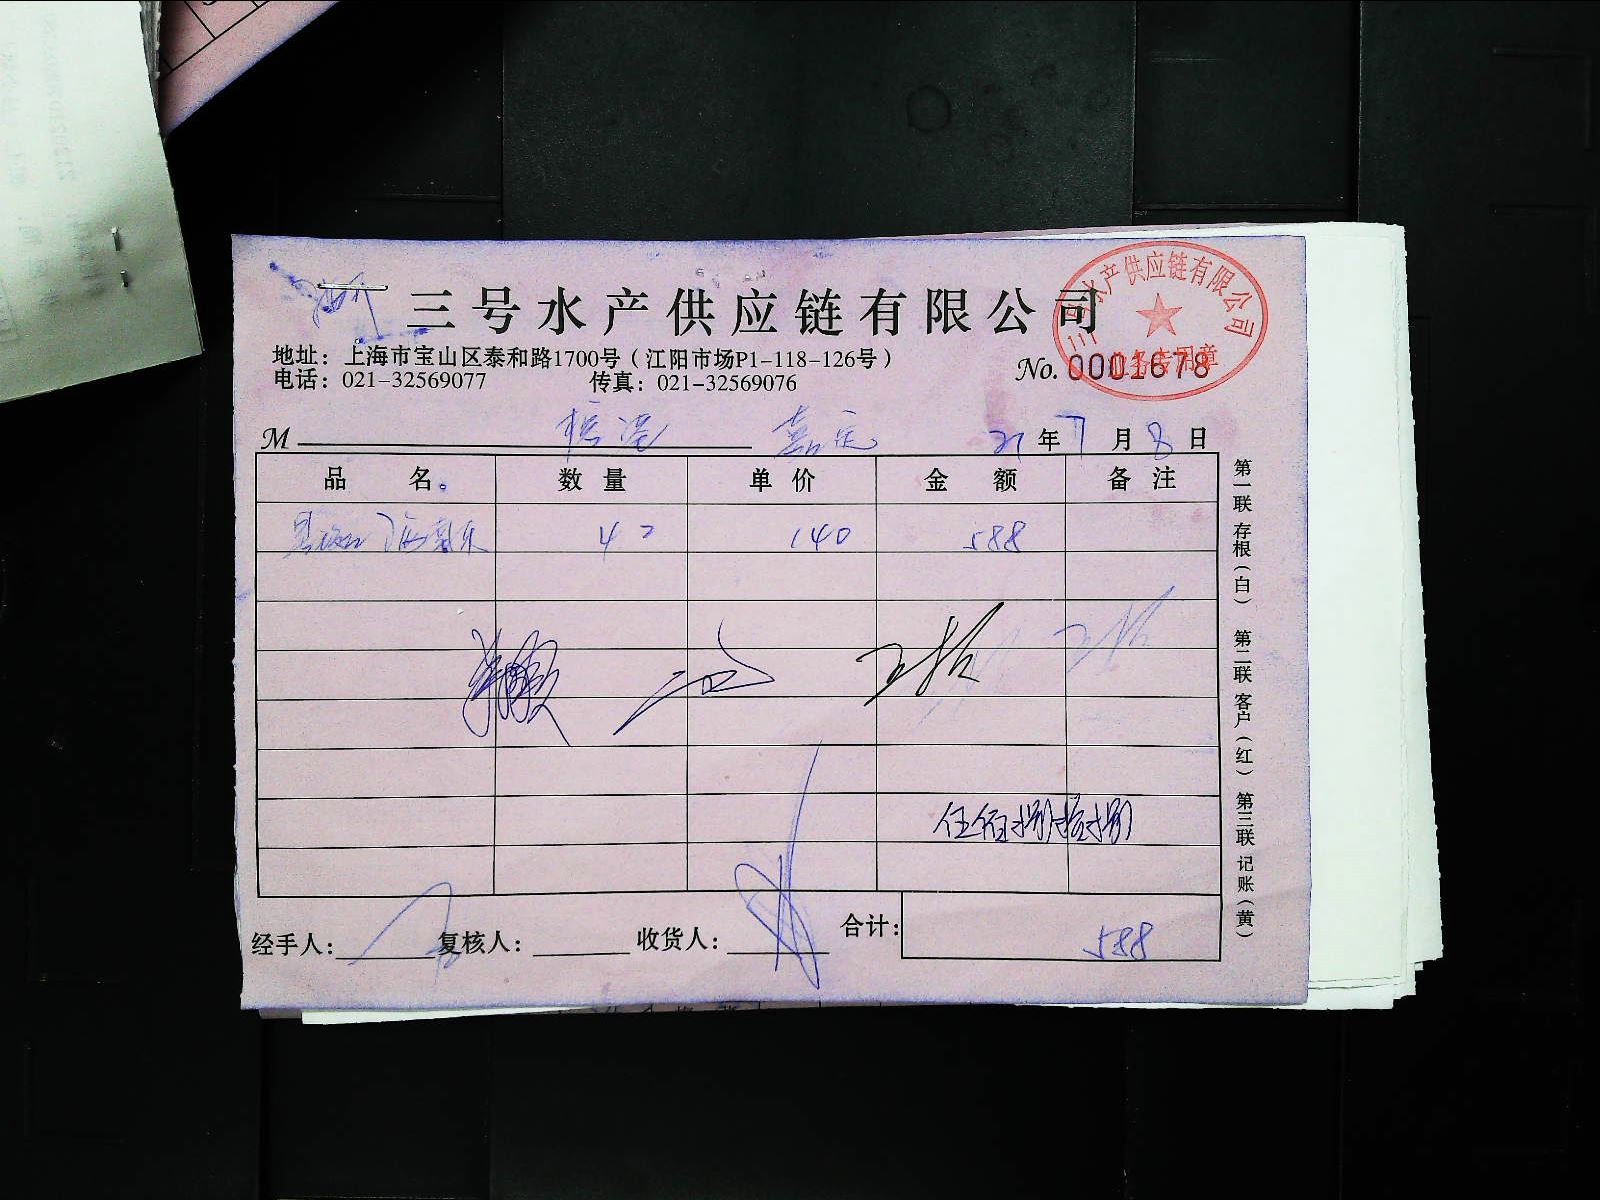 三号水产供应链有限公司
三号水产供应链有限公司
业务专用章
地址：上海市宝山区泰和路1700号（江阳市场P1-118-126号）
电话：021-32569077 传真：021-32569076
No. 0001678
M 嘉定 21年7月8日
品名 数量 单价 金额 备注
42 140 588
伍佰捌拾捌
经手人： 复核人： 收货人： 合计： 588
第一联存根（白） 第二联客户（红） 第三联记账（黄）